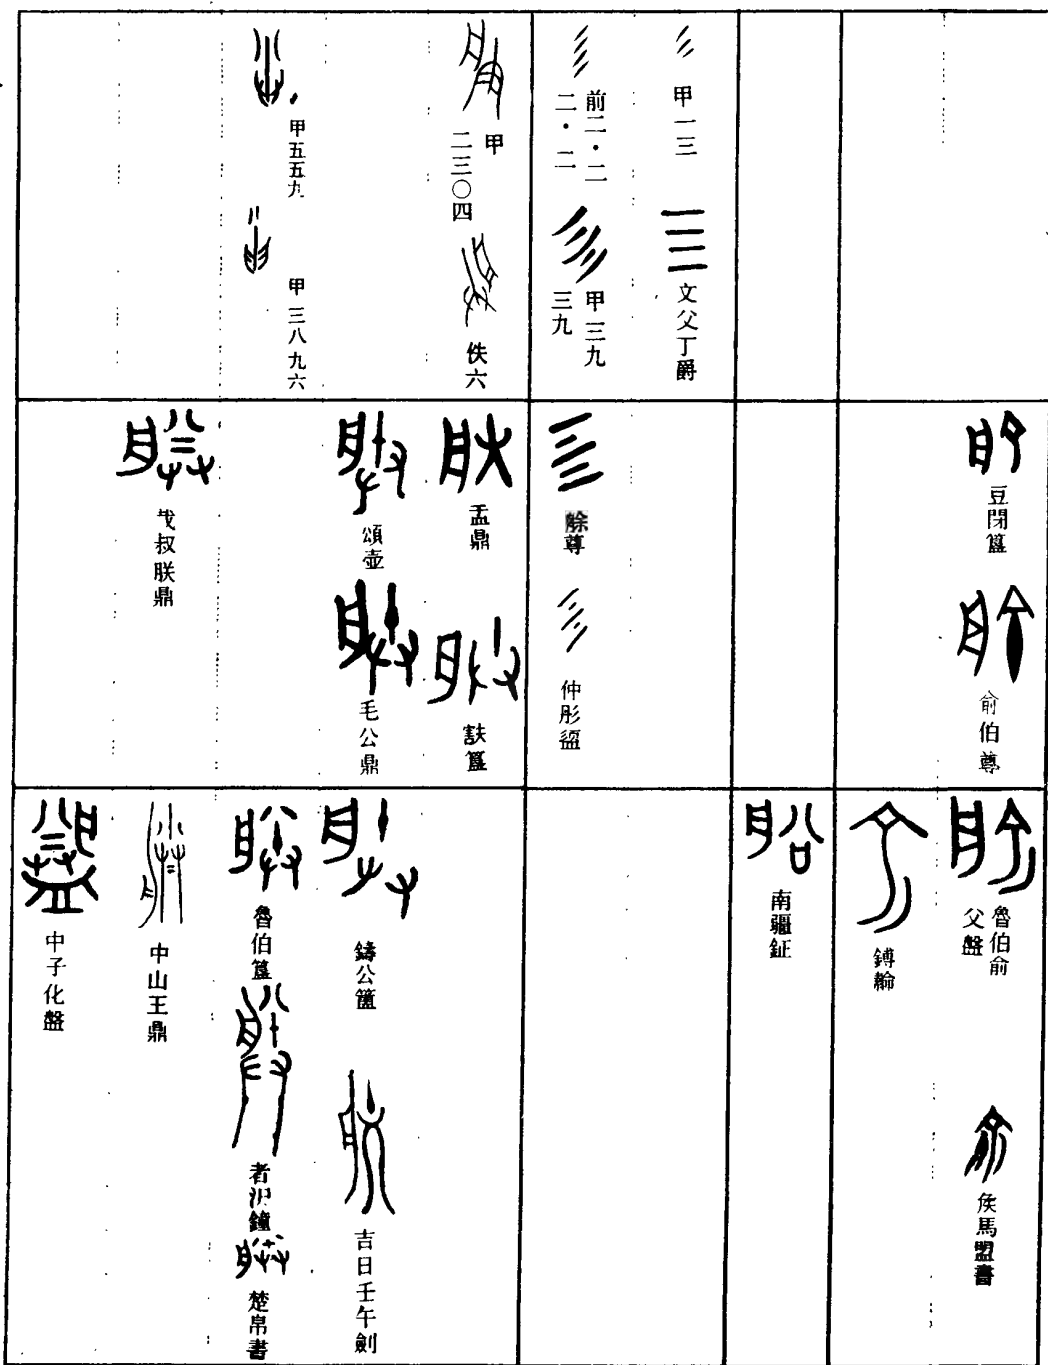 甲一三
文父丁爵
前二・二
二・二
甲三九
三九
甲
二三〇四
佚六
甲五五九
甲三八九六
豆閉簋
俞伯尊
尊
仲彤盨
盂鼎
㝬簋
頌壺
毛公鼎
叔朕鼎
魯伯俞
父盤
侯馬盟書
鎛
南疆鉦
鑄公簠
吉日壬午劍
魯伯簋
者㳓鐘
楚帛書
中山王鼎
中子化盤